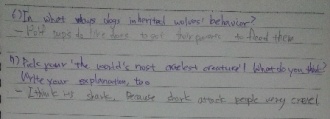 6) In what ways dogs inherited wolves' behavior?
- to feed them
7) Pick your 'the world's most cruelest creature'! What do you think?
Write your explanation, too
- I think it's shark, because shark attack people very cruel